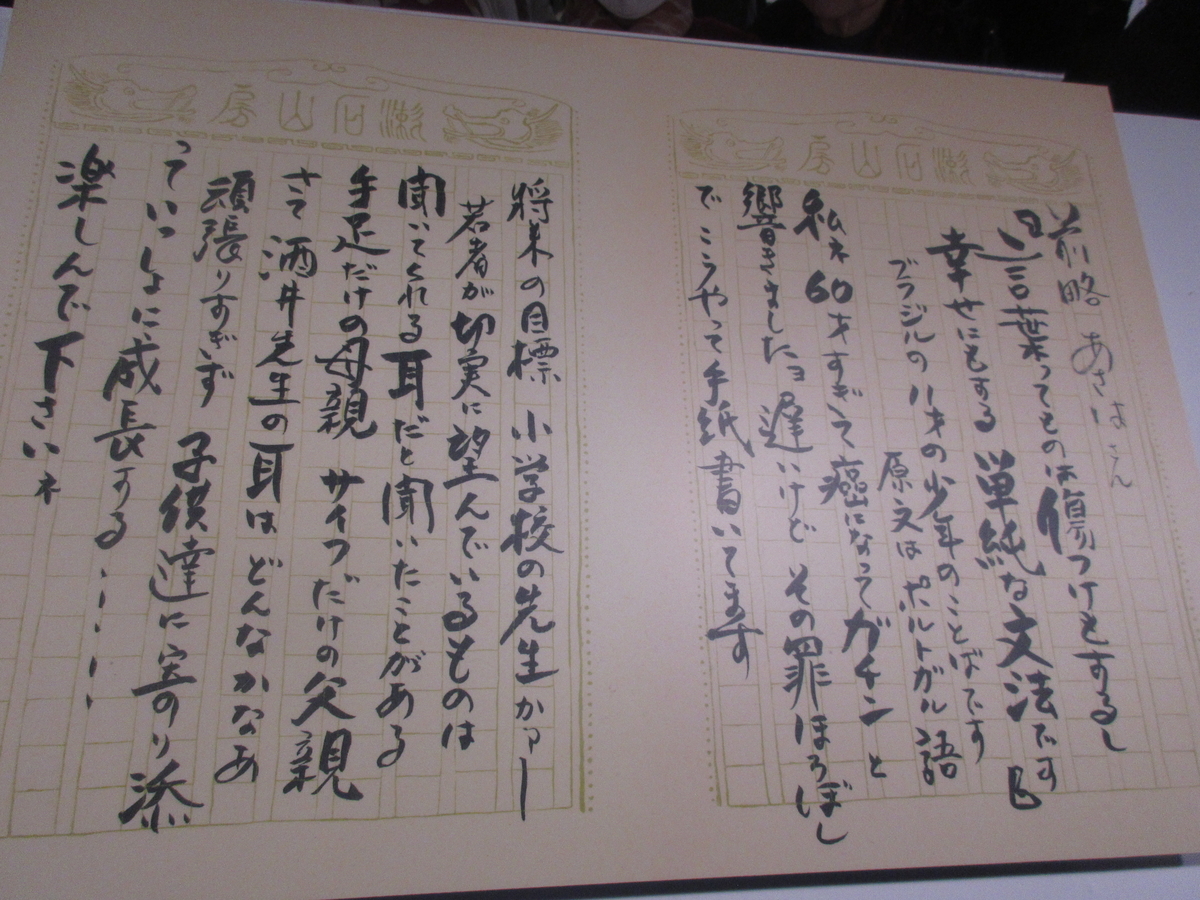 漱石山房
前略 あさはさん
『言葉ってものは傷つけもするし
幸せにもする 単純な文法です』
ブラジルの八才の少年のことばです
原文はポルトガル語
私ネ60才すぎて癌になってガチンと
響きましたヨ 遅いけど その罪ほろぼし
でこうやって手紙書いてます
漱石山房
将来の目標 小学校の先生かァー
若者が切実に望んでいるものは
聞いてくれる耳だと聞いたことがある
手足だけの母親 サイフだけの父親
さて酒井先生の耳はどんなかなあ
頑張りすぎず 子供達に寄り添
っていっしょに成長する
楽しんで下さいネ